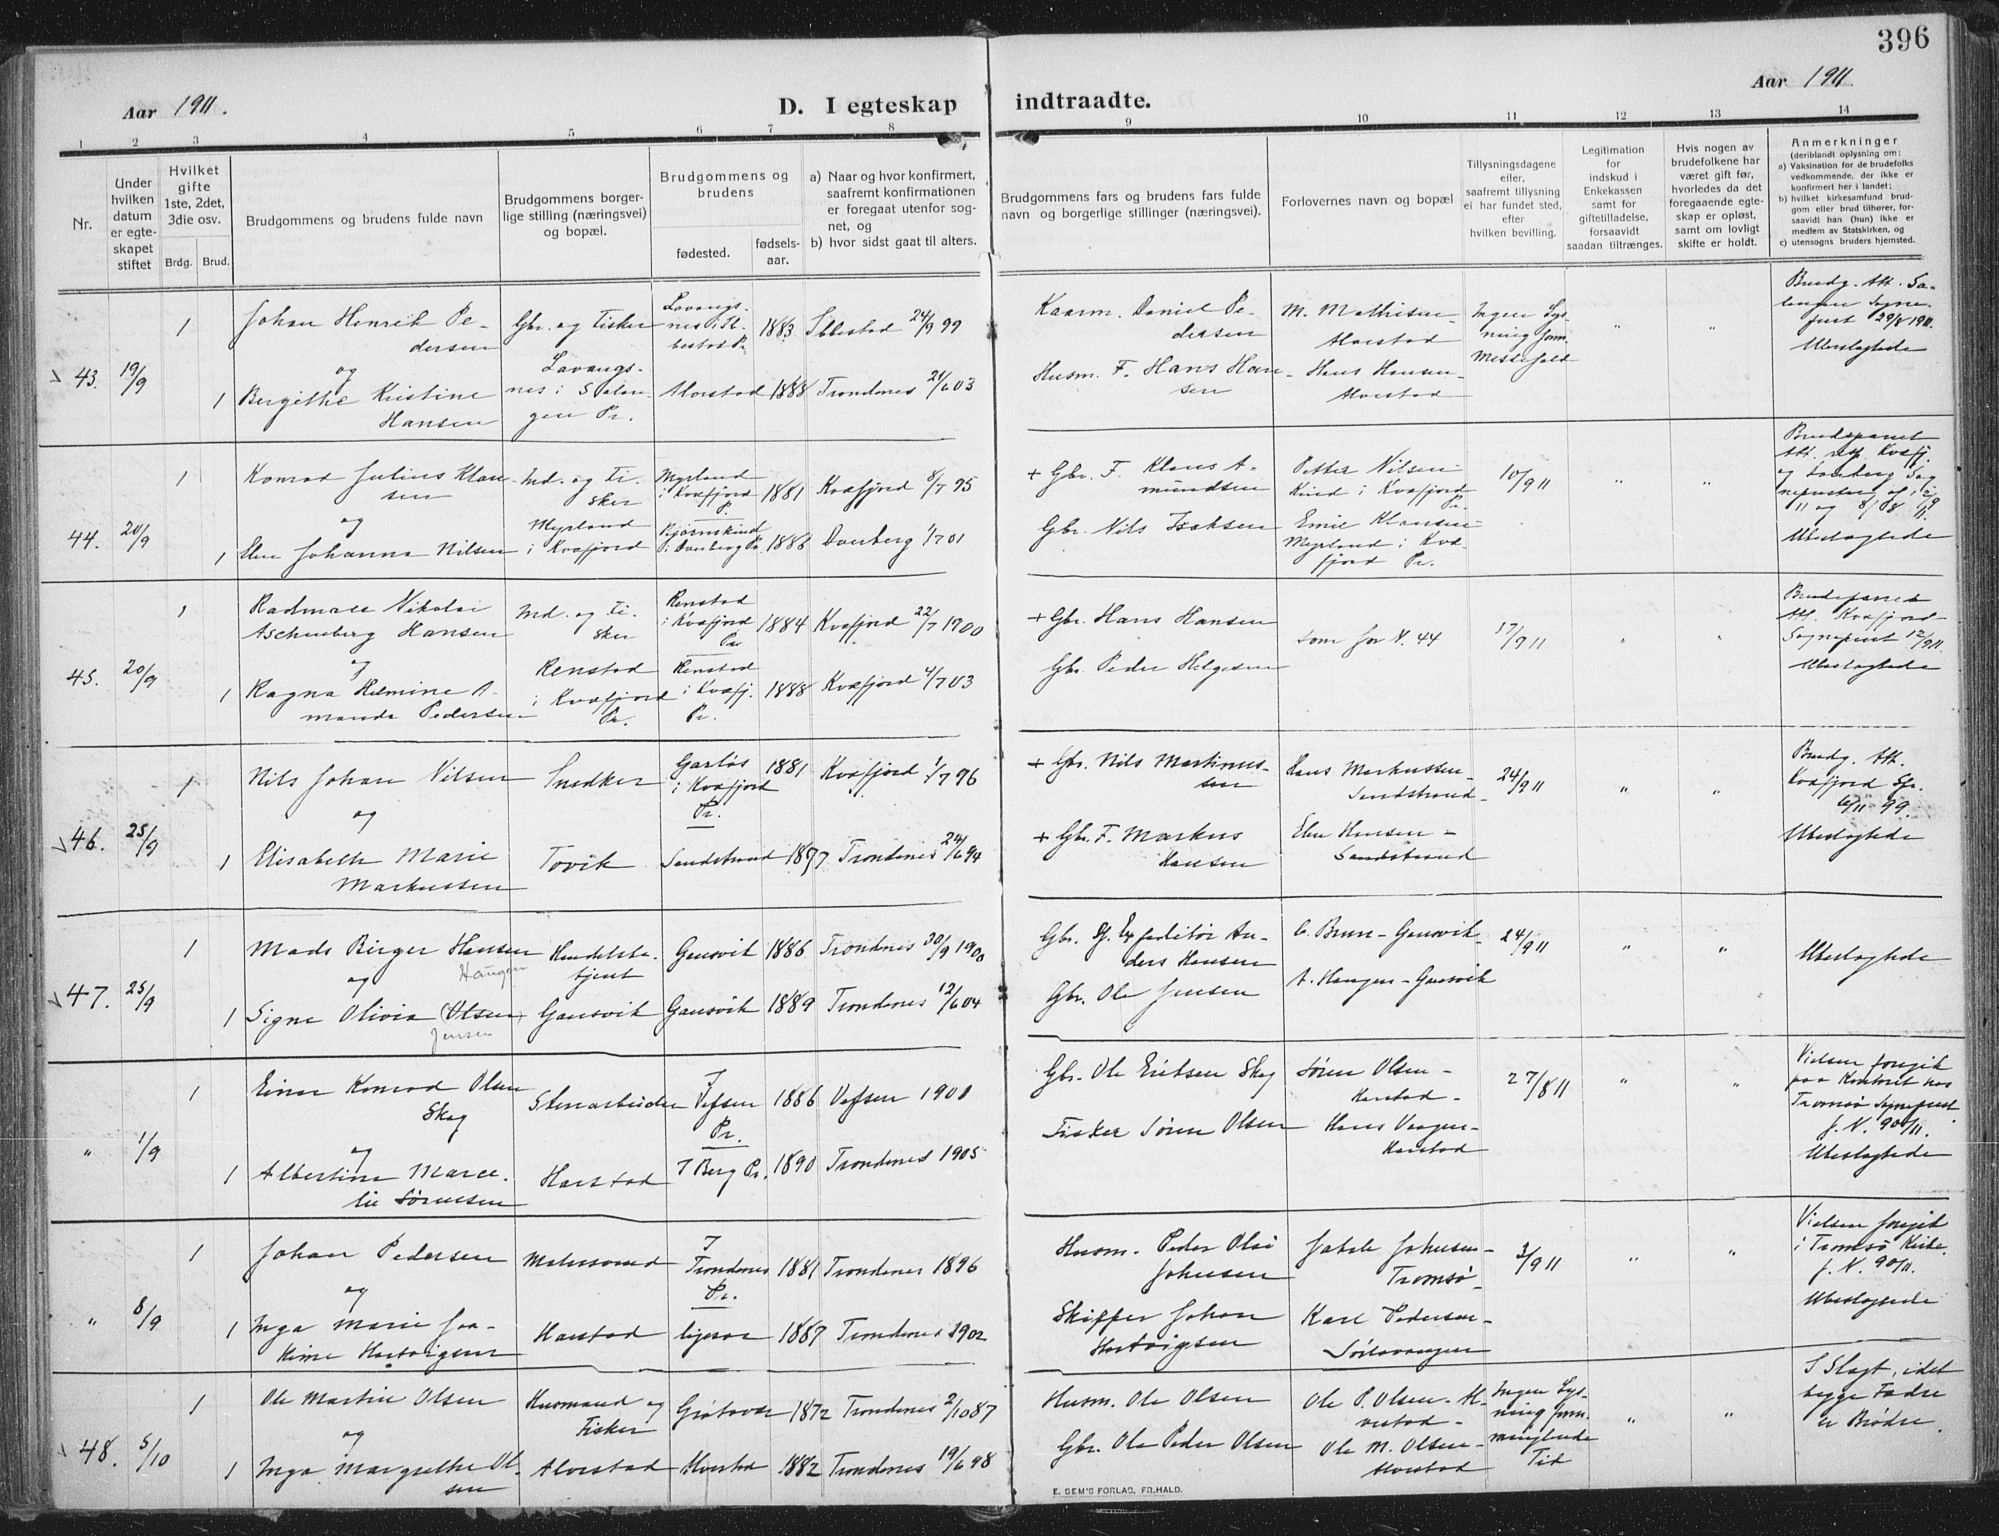 396
Aar 1911.
D. I egteskap indtraadte.
Aar 1911
1 2 3 4 5 6 7 8 9 10 11 12 13 14
Nr.
Under hvilken datum er egteskapet stiftet
Hvilket gifte 1ste, 2det, 3die osv.
Brdg. Brud.
Brudgommens og brudens fulde navn
Brudgommens borgerlige stilling (næringsvei) og bopæl.
Brudgommens og brudens
fødested.
fødselsaar.
a) Naar og hvor konfirmert, saafremt konfirmationen er foregaat utenfor sognet, og
b) hvor sidst gaat til alters.
Brudgommens fars og brudens fars fulde navn og borgerlige stillinger (næringsvei).
Forlovernes navn og bopæl
Tillysningsdagene eller, saafremt tillysning ei har fundet sted, efter hvilken bevilling.
Legitimation for indskud i Enkekassen samt for giftetilladelse, forsaavidt saadan tiltrænges.
Hvis nogen av brudefolkene har været gift før, hvorledes da det foregaaende egteskap er opløst, samt om lovligt skifte er holdt.
Anmerkninger
(deriblandt oplysning om:
a) Vaksination for de brudefolks vedkommende, der ikke er konfirmert her i landet;
b) hvilket kirkesamfund brudgom eller brud tilhører, forsaavidt han (hun) ikke er medlem av Statskirken, og
c) utensogns bruders hjemsted.
43. 19/9
1 Johan Henrik Pedersen
Gbr. og Fisker
Lavangsnes i
1883
24/9 99
Kaarm. Daniel Pedersen
M. Mathisen - Alvestad
Ingen Lysning
Brudg. Att. Salangen Sogneprest 29/8 1911.
Ubeslægtede
og
1 Bergithe Kristine Hansen
Lavangsnes i Salangen Pr.
Alvestad 1888 Trondenes 21/6 03
Husm. F. Hans Hansen
Hans Hansen - Alvestad
44. 20/9
1 Konrad Julius Klausen
Ind. og Fisker
Myrland i Kvæfjord P. 1881 Kvæfjord 8/7 95
+ Gbr. F. Klaus Amundsen
Petter Nilsen - Kind i Kvæfjord Pr.
10/9 11
" "
Brudeparret Att. Kvæfj. og Dverberg Sogneprester
Ubeslægtede
og
1 Elen Johanna Nilsen
Myrland i Kvæfjord
Bjørnskind i Dverberg Pr. 1886 Dverberg 1/7 01
Gbr. Nils Isaksen
Emil Klausen - Myrland i Kvæfjord Pr.
45. 20/9
1 Nikolai Aschenberg Hansen
Ind. og Fisker
Renstad i Kvæfjord Pr. 1884 Kvæfjord 22/7 1900
+ Gbr. Hans Hansen
Som for N. 44
17/9 11
" "
Brudeparret Att. Kvæfjord Sogneprest 12/9 11.
Ubeslægtede
og
1 Ragna Helmine Amanda Pedersen
Renstad i Kvæfjord Pr.
Renstad i Kvæfj. Pr. 1888 Kvæfjord 4/7 03
Gbr. Peder Helgesen
46. 25/9
1 Nils Johan Nilsen
Snedker
i Kvæfjord Pr. 1881 Kvæfjord 1/7 96
+ Gbr. Nils Martinussen
Hans Markussen - Sandstrand
24/9 11
" "
Brudg. Att. Kvæfjord Spr. 6/11 99.
Ubeslægtede
og
1 Elisabeth Marie Markussen
Tovik
Sandstrand 1877 Trondenes 24/6 94
+ Gbr. F. Markus Hansen
Elen Hansen - Sandstrand
47. 25/9
1 Mads Birger Hansen
Haugen
Handelsbetjent
Gausvik 1886 Trondenes 30/9 1900
Gbr. Sf. Expeditør Anders Hansen
C. Brun - Gausvik
24/9 11
" "
Ubeslægtede
og
1 Signe Olivia (Olsen)
Jensen
Gausvik Gausvik 1889 Trondenes 12/6 04
Gbr. Ole Jensen
A. Haugen - Gausvik
" 1/9
1 Einar Konrad Olsen Skog
Stenarbeider
I Vefsen Pr. 1886 Vefsen 1901
Gbr. Ole Eriksen Skog
Søren Olsen - Harstad -
27/8 11
" "
Vielsen foregik paa Kontoret hos Tromsø Sogneprest j. N. 90/11.
Ubeslægtede
og
1 Albertine Marcelie Sørensen
Harstad
I Berg Pr. 1890 Trondenes 1905
Fisker Søren Olsen
Hans Vaagen - Harstad
" 8/9
1 Johan Pedersen
Malersvend
I Trondenes Pr. 1881 Trondenes 1896
Husm. Peder Olai Johnsen
Jakob Johnsen - Tromsø -
3/9 11
" "
Vielsen foregik i Tromsø Kirke. j. N. 90/11.
Ubeslægtede
og
1 Inga Marie Joakime Hartvigsen
Harstad
ligesaa 1887 Trondenes 1902
Skipper Johan Hartvigsen
Karl Pedersen - Sørlavangen
48. 5/10
1 Ole Martin Olsen
Husmand og Fisker
Grøtavær 1872 Trondenes 2/10 87
Husm. Ole Olsen
Ole P. Olsen - Alvestad -
Ingen Lysning form. manglende Tid
" "
I Slægt, idet begge Fædre er Brødre.
og
1 Inga Margrethe Olsen
Alvestad Alvestad 1882 Trondenes 19/6 98
Gbr. Ole Peder Olsen
Ole M. Olsen - Alvestad
E. SEM'S FORLAG, FR.HALD.